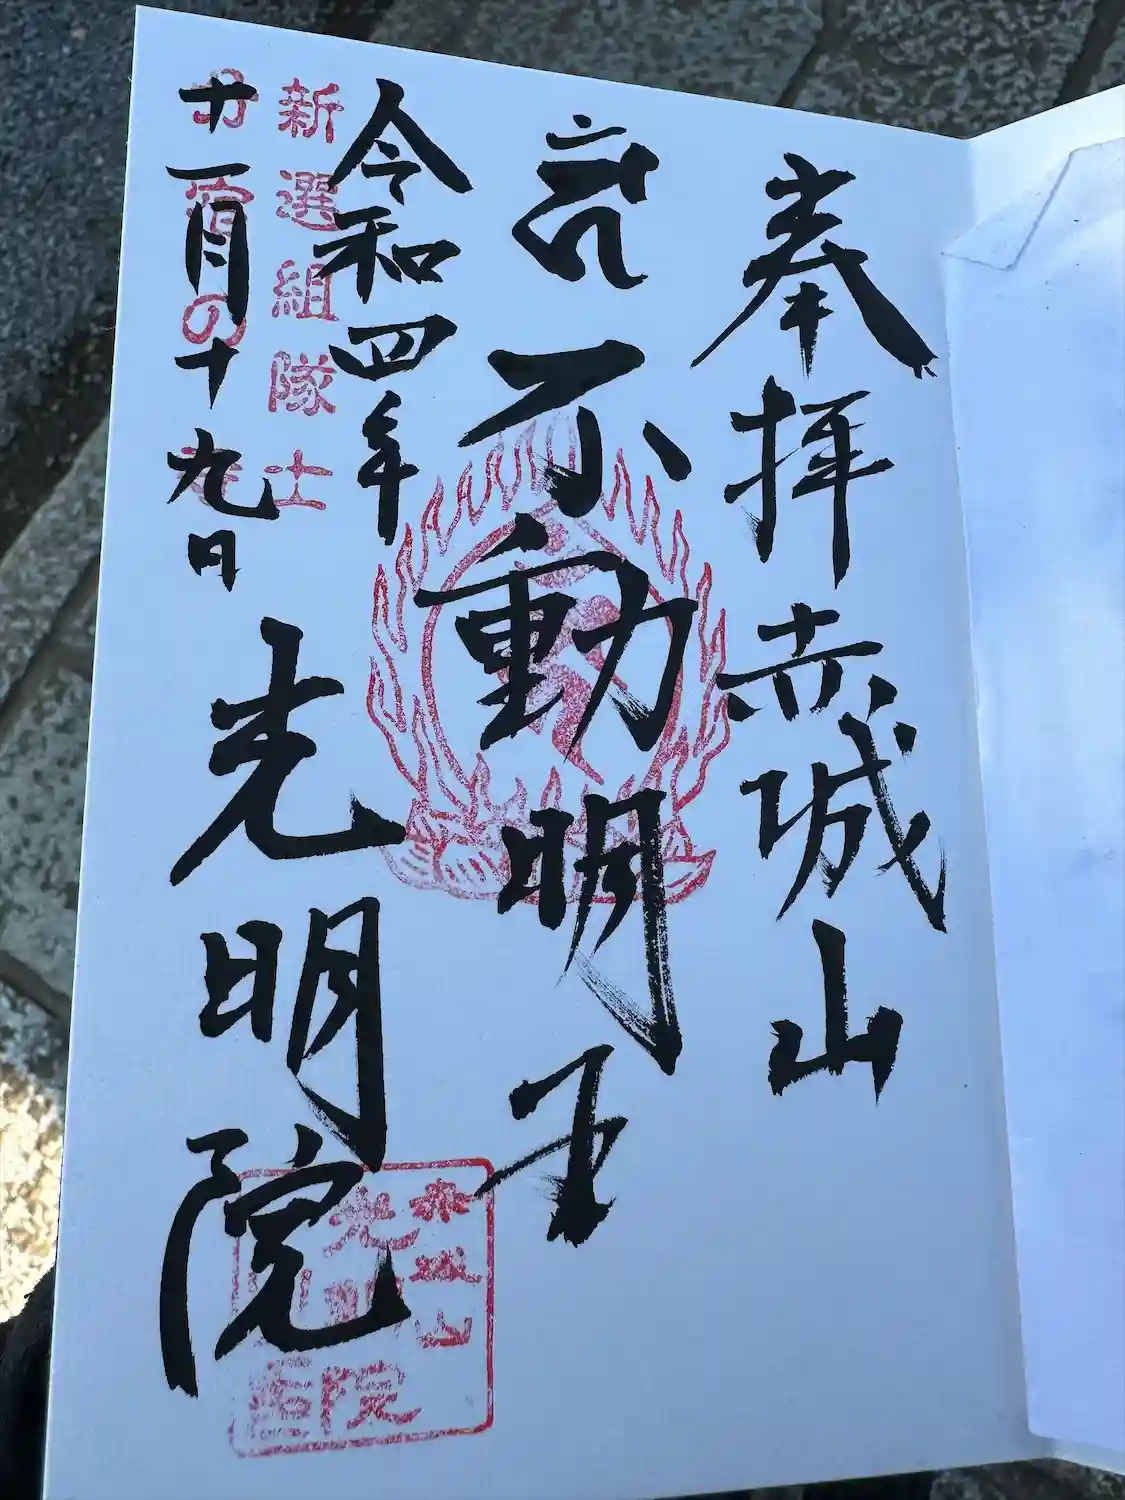 奉拝 赤城山
不動明王
令和四年
新選組隊士
十一月十九日
光明院
赤城山
光明院